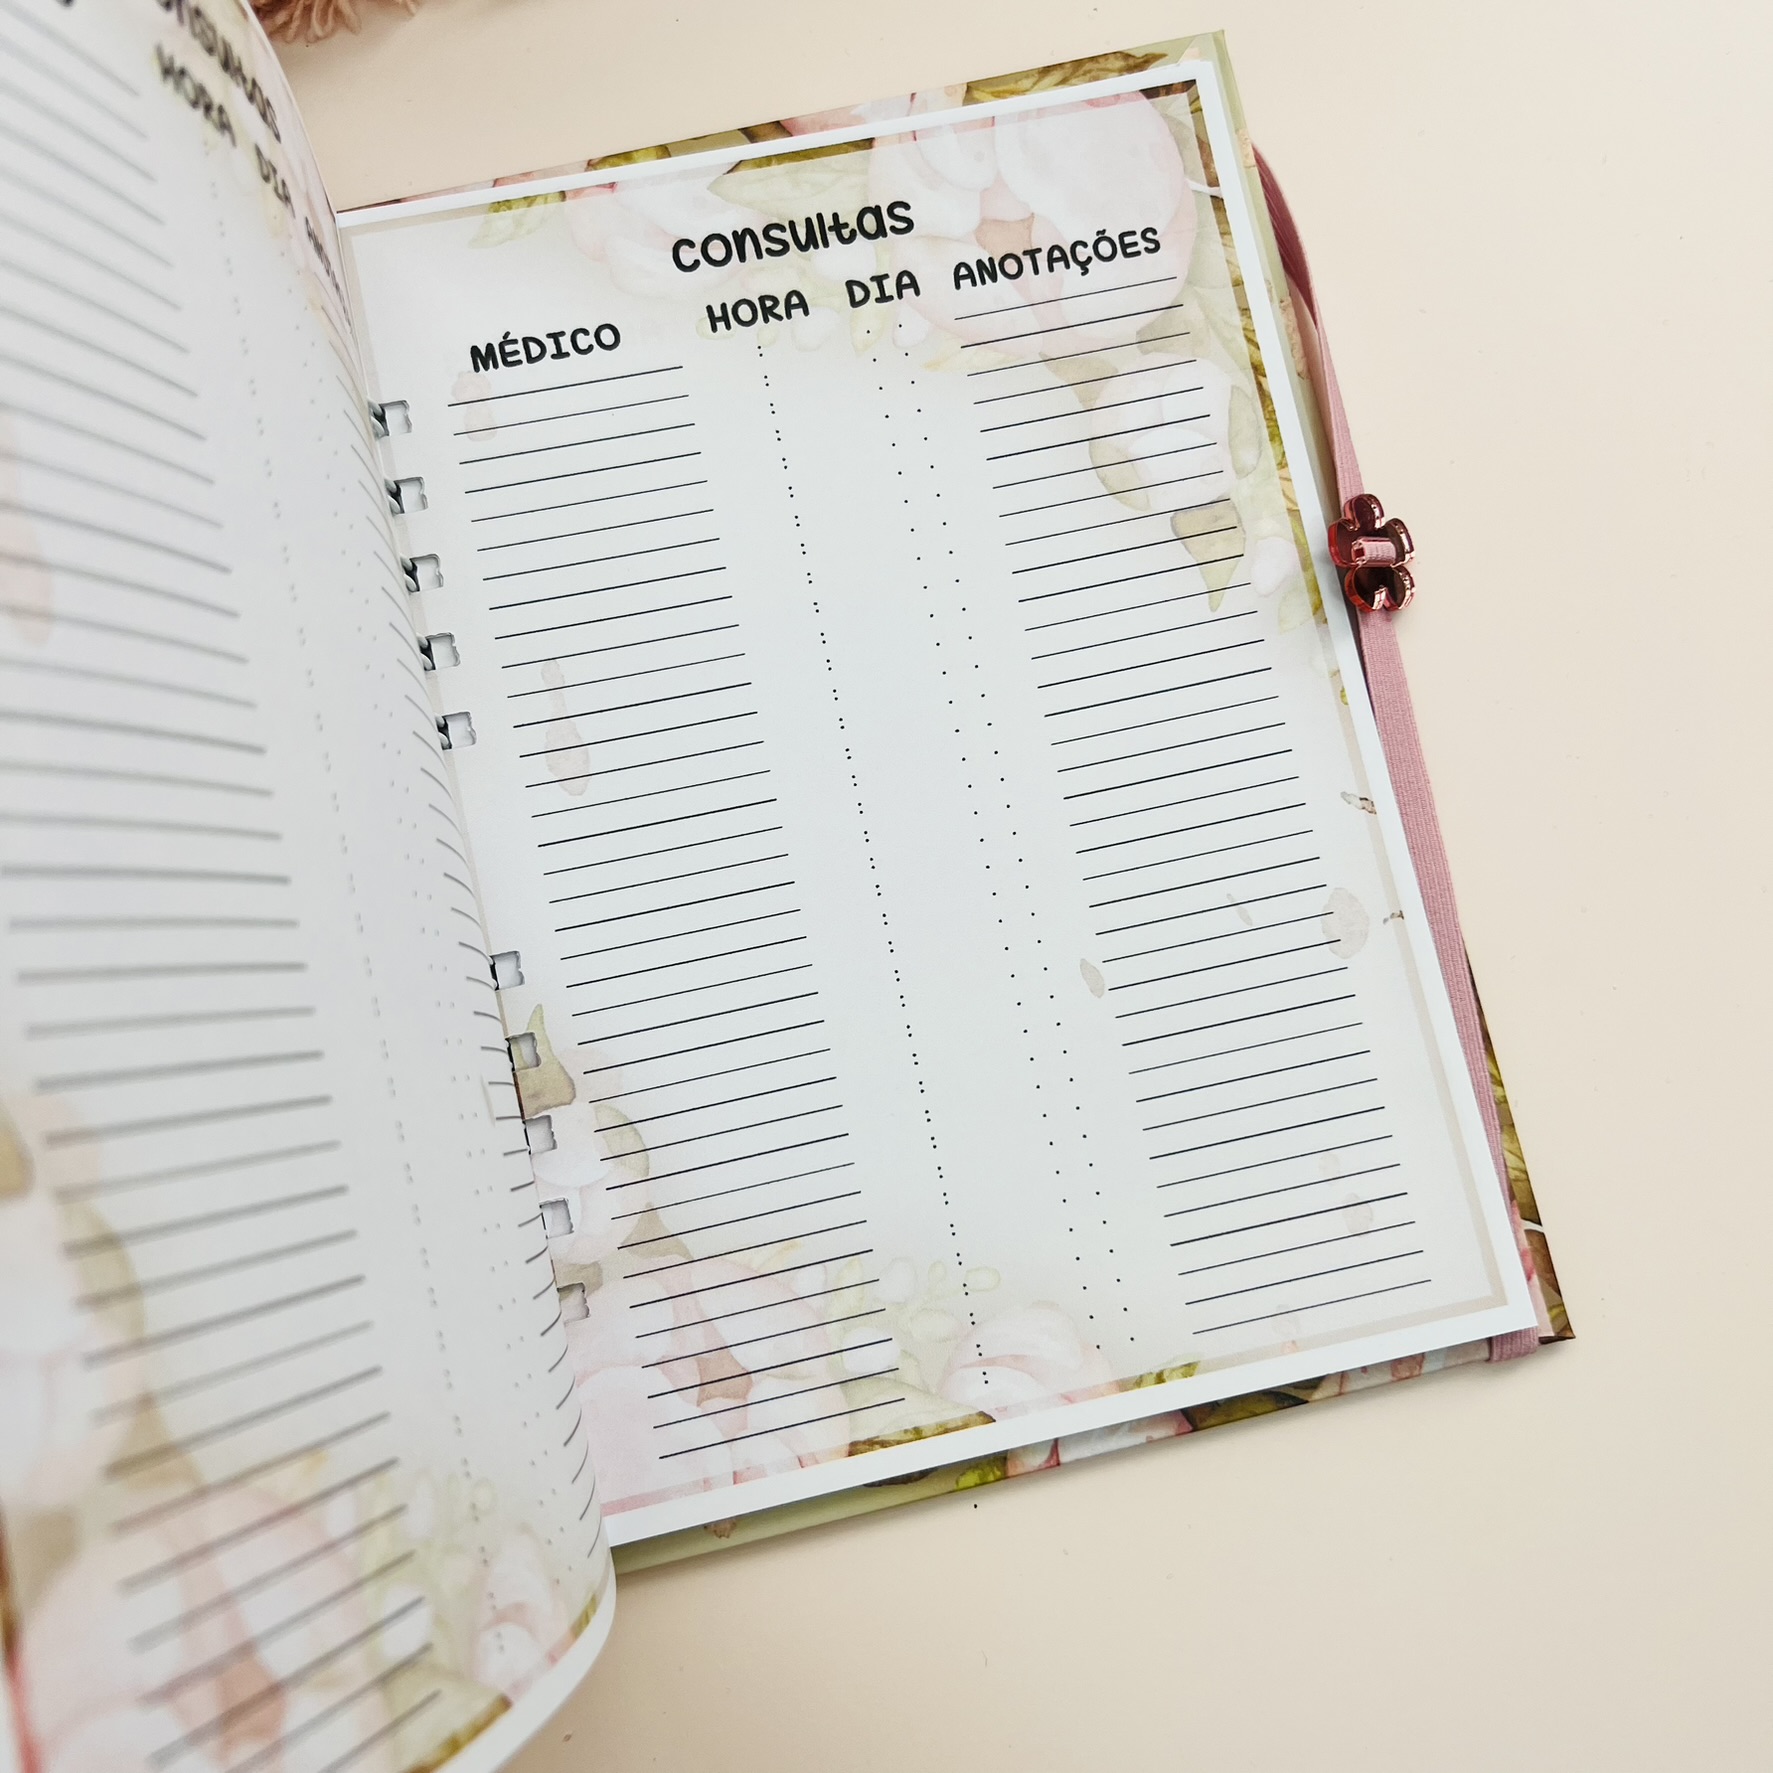 consultas
HORA DIA
consultas
MÉDICO HORA DIA ANOTAÇÕES